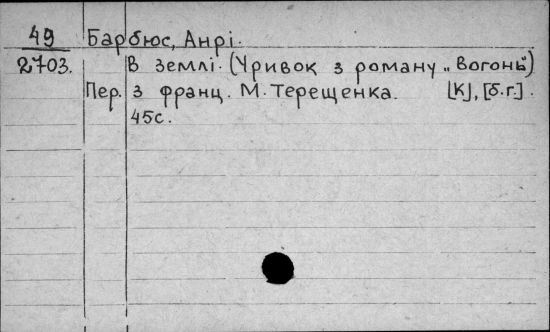 49 Барбюс, Анрі.
2703. В землі. (Уривок з роману „Вогонь")
Пер. з франц. М. Терещенка. [К], [б.г.].
45с.